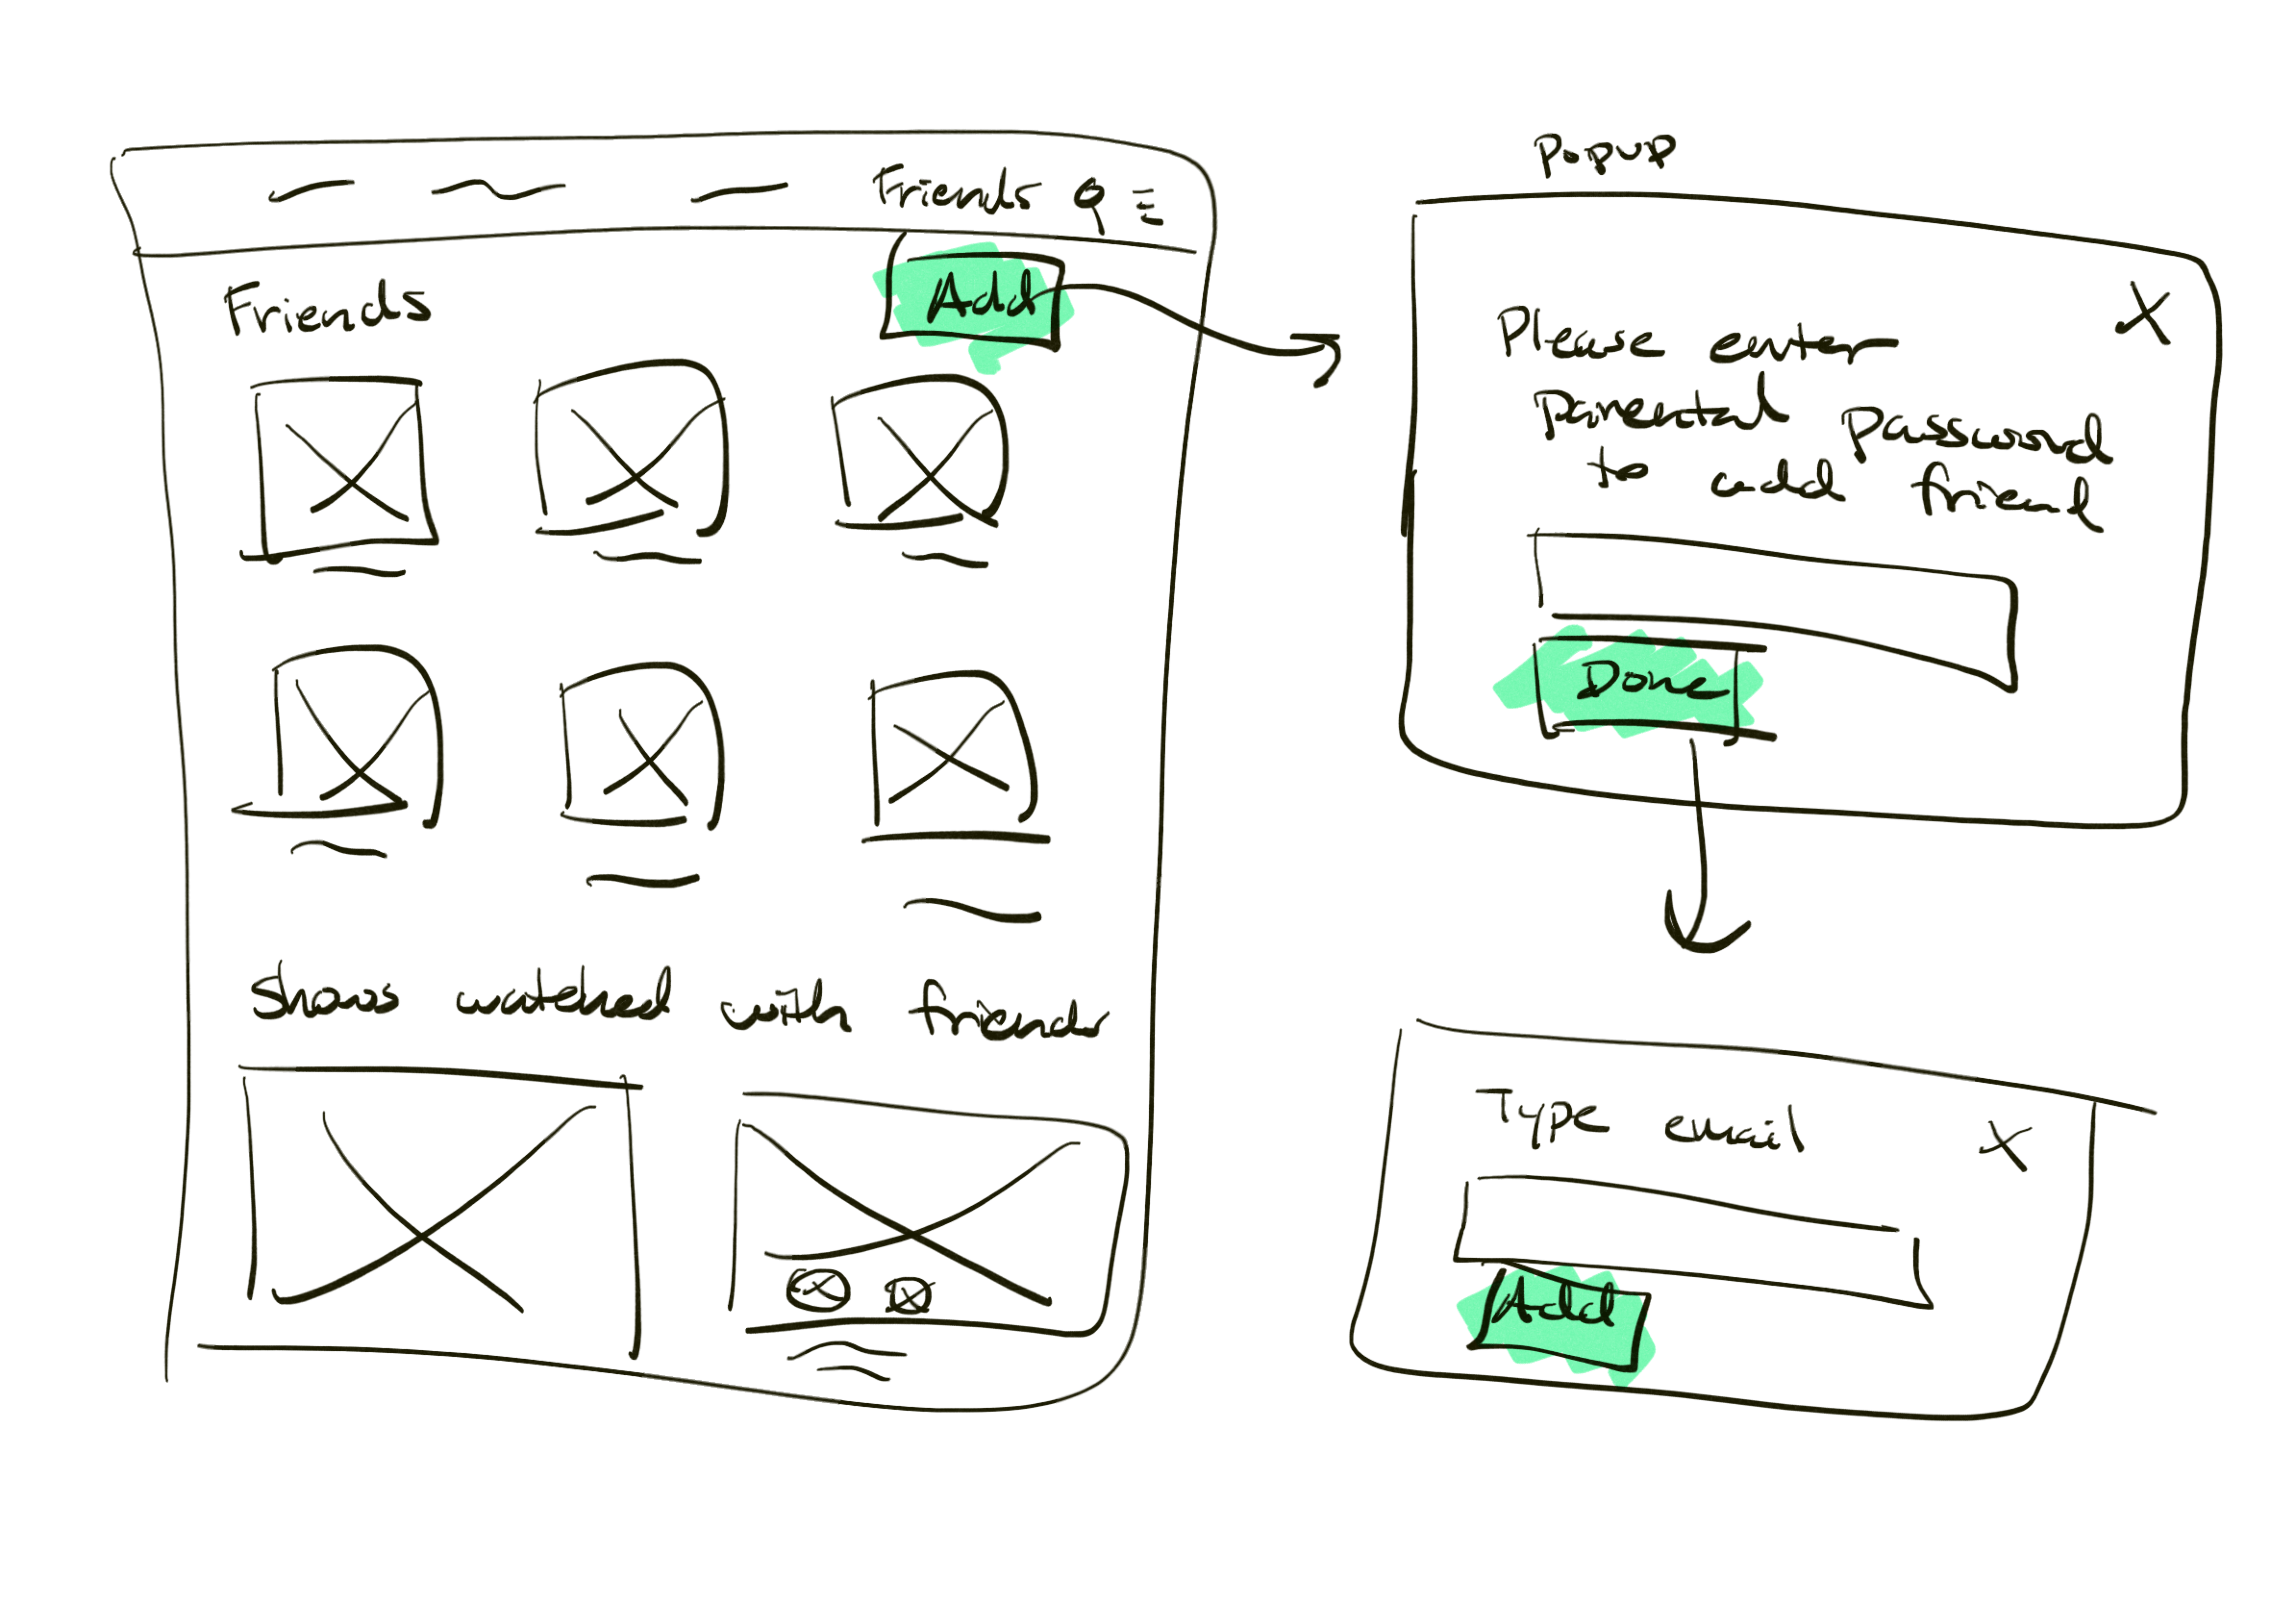 Friends
Add
Friends
Shows watched with friends
Popup
X
Please enter
parental password
to add friend
Done
Type email
X
Add